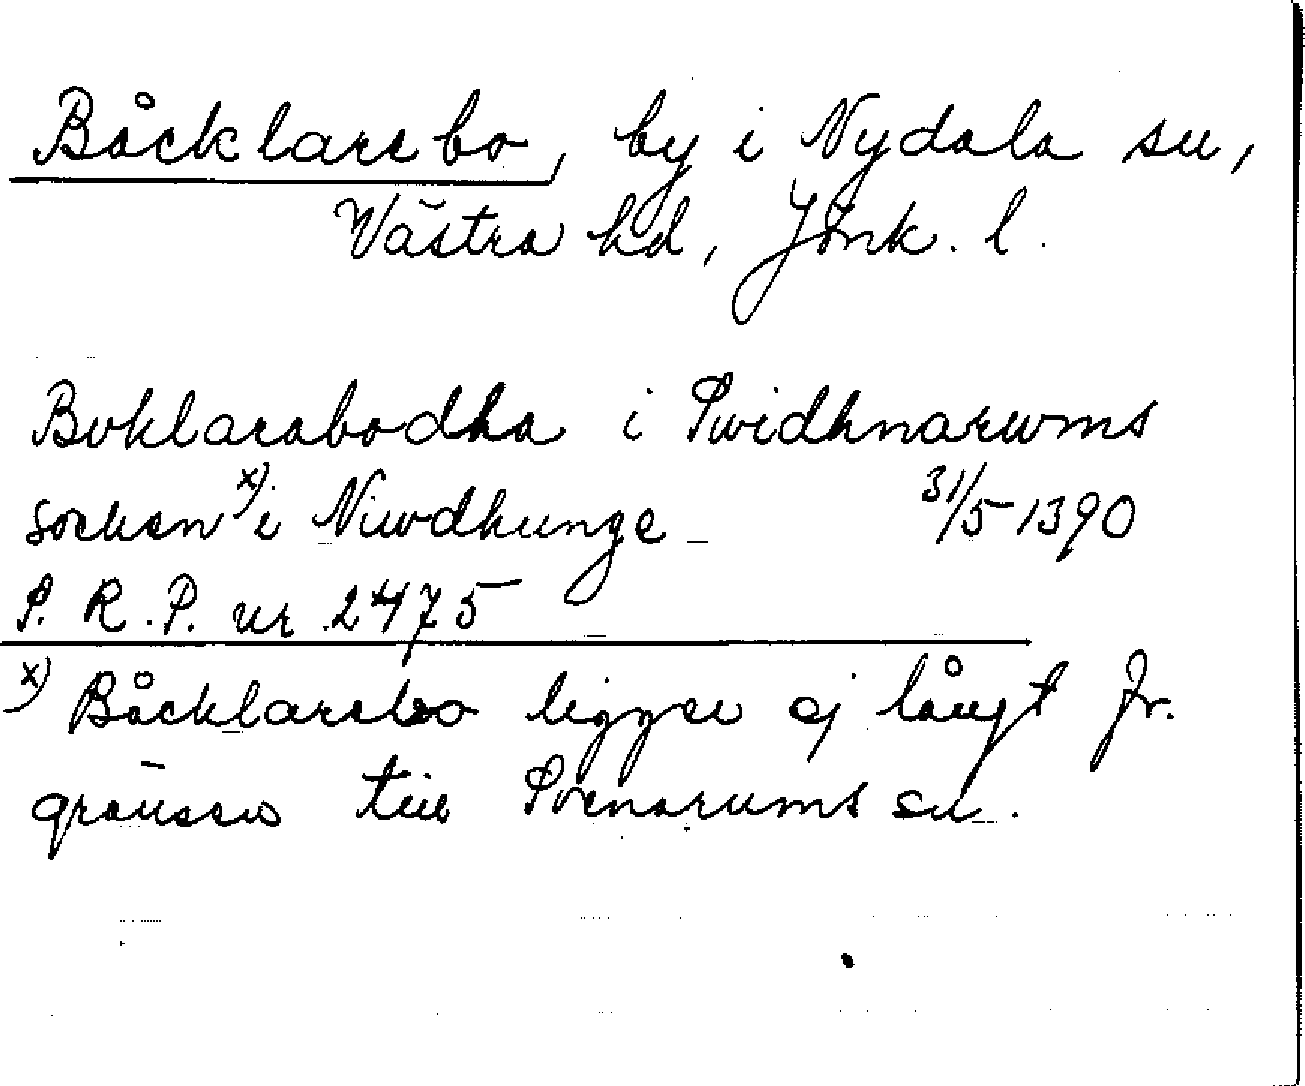 Båcklarebo, by i Nydala sn,
Västra hd, Jönk. l.
Boklarabodha i Swidhnarwms
socken x) i Niwdhunge 31/5 1390
S. R. P. nr 2475
x) Båcklarebo ligger ej långt fr.
gränsen till Svenarums sn.